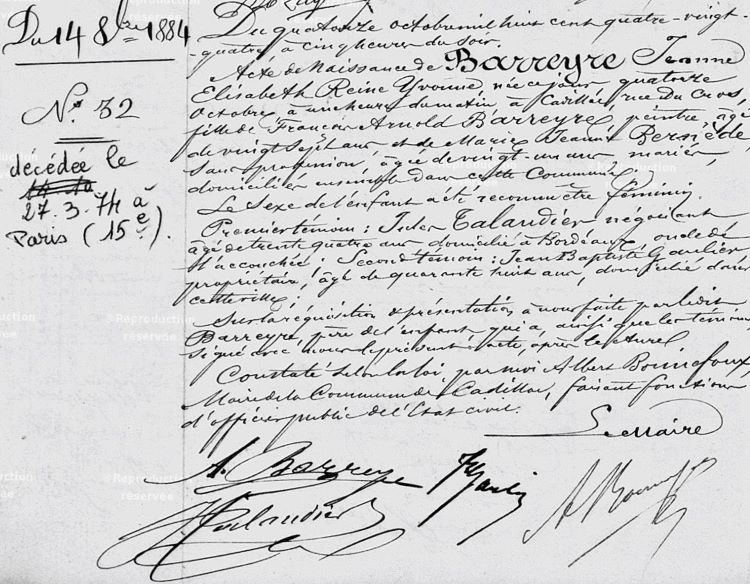 Du 14 8bre 1884
N° 32
décédée le
27.3.74 à
Paris (15e).
Du quatorze octobre mil huit cent quatre-vingt-
-quatre à cinq heures du soir.
Acte de Naissance de Barreyre Jeanne
Elisabeth Reine Yvonne, née ce jour quatorze
Octobre à une heure du matin, à Cadillac, rue Du Cros,
fille de François Arnold Barreyre, peintre, âgé
de vingt sept ans et de Marie Jeanne Berniède,
sans profession, âgée de vingt-un ans, mariés,
domiciliés ensemble dans cette Commune.
Le Sexe de l'enfant a été reconnu être féminin.
Premier témoin : Jules Talandier négociant
âgé de trente quatre ans domicilié à Bordeaux, oncle de
l'accouchée ; Second témoin : Jean Baptiste
propriétaire, âgé de quarante huit ans, domicilié dans
cette ville ;
Sur la réquisition & présentation à nous faite par le dit
Barreyre, père de l'enfant qui a, ainsi que les témoins
signé avec nous le présent acte, après lecture.
Constaté selon la loi par moi Albert Bonnefoux,
Maire de la Commune de Cadillac, faisant fonctions
d'officier public de l'Etat civil.
Le Maire
A. Barreyre
J. Talandier
© Reproduction
réservée